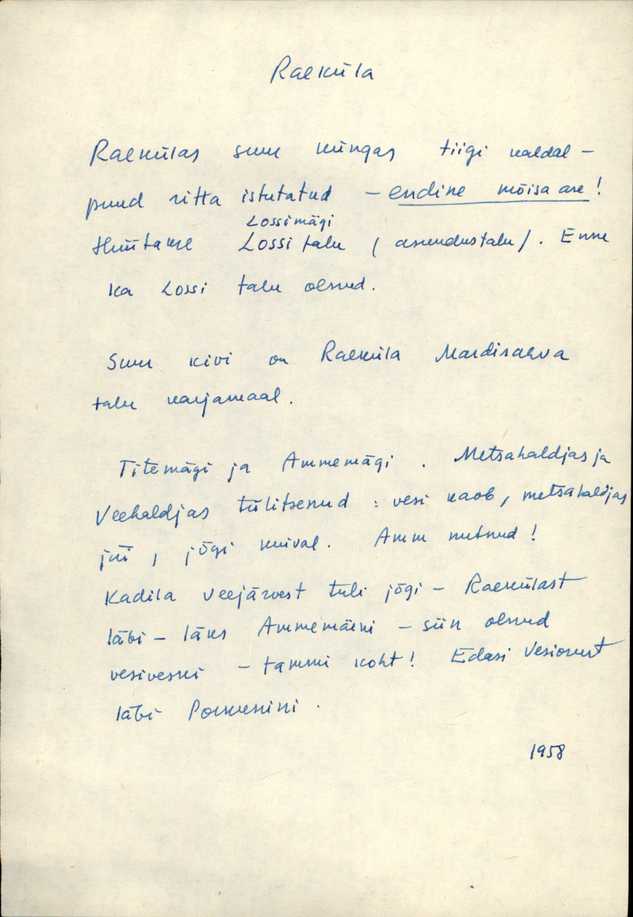 Raeküla
Raekülas suur küngas tiigi kaldal –
puud ritta istutatud – endine mõisa ase!
Lossimägi
Hüütakse Lossi talu (asundustalu). Enne
ka Lossi talu olnud.
Suur kivi on Raeküla Mardiraehva
talu karjamaal.
Titemägi ja Ammemägi. Metsahaldjas ja
Veehaldjas tülitsenud : vesi kaob, metsahaldjas
jäi, jõgi kuival. Amm nutnud!
Kadila Veejärvest tuli jõgi – Raekülast
läbi – läks Ammemäeni – siin olnud
vesiveski – tammi koht! Edasi Vesiorust
läbi Porkuni.
1958